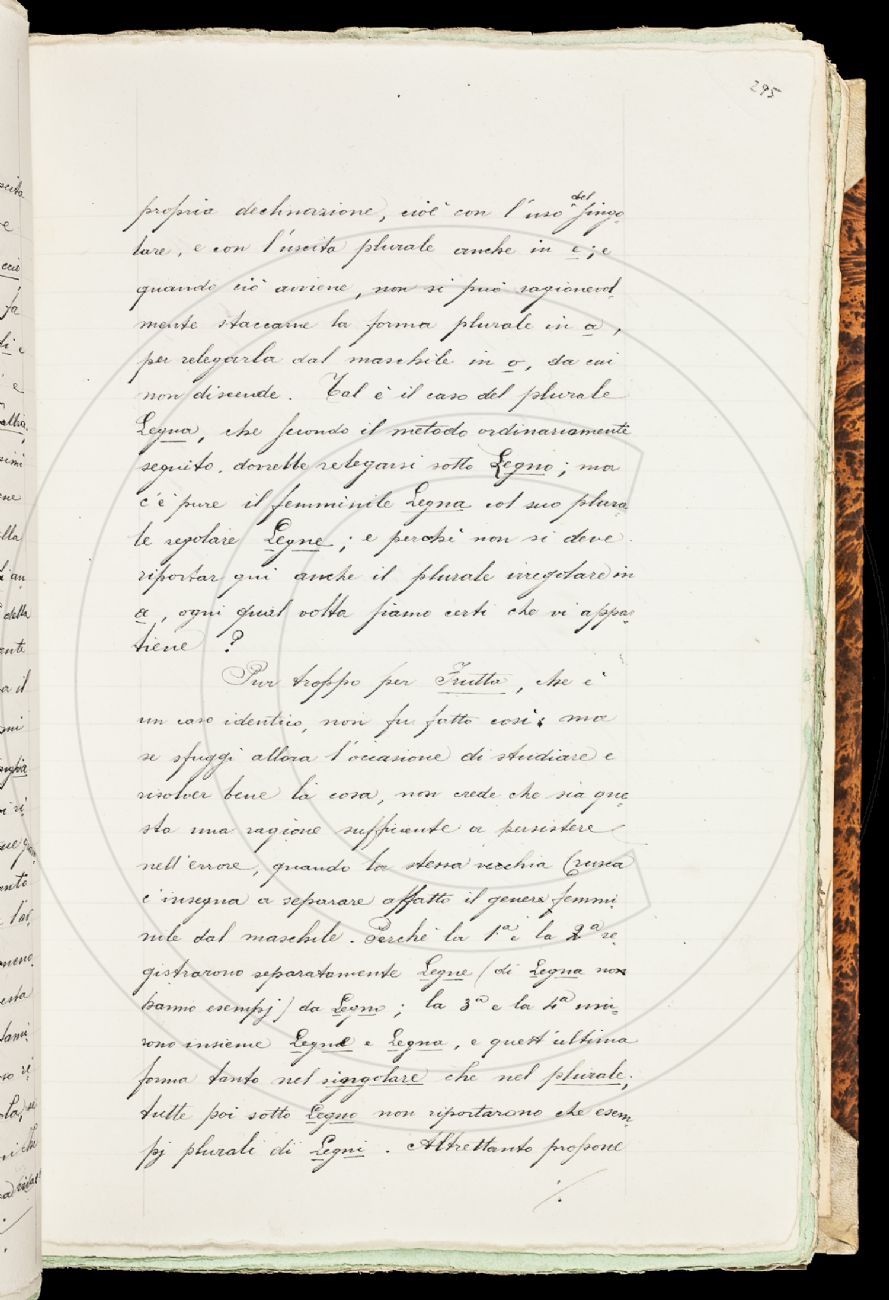 295
propria declinazione, cioè con l'uso del singo-
lare, e con l'uscita plurale anche in e; e
quando ciò avviene, non si può ragionevol-
mente staccarne la forma plurale in a,
per relegarla dal maschile in o, da cui
non discende. Tal è il caso del plurale
Legna, che secondo il metodo ordinariamente
seguito, dovrebbe relegarsi sotto Legno; ma
c'è pure il femminile Legna col suo plura-
le regolare Legne; e perchè non si deve
riportar qui anche il plurale irregolare in
a, ogni qual volta siamo certi che vi appar-
tiene?
Pur troppo per Frutta, che è
un caso identico, non fu fatto così; ma
se sfuggì allora l'occasione di studiare e
risolver bene la cosa, non crede che sia que-
sta una ragione sufficiente a persistere
nell'errore, quando la stessa vecchia Crusca
c'insegna a separare affatto il genere femmi-
nile dal maschile. Perchè la 1a e la 2a re-
gistrarono separatamente Legne (di Legna non
hanno esempj) da Legno; la 3a e la 4a uni-
rono insieme Legne e Legna, e quest'ultima
forma tanto nel singolare che nel plurale;
tutte poi sotto Legno non riportarono che esem-
pj plurali di Legni. Altrettanto propone